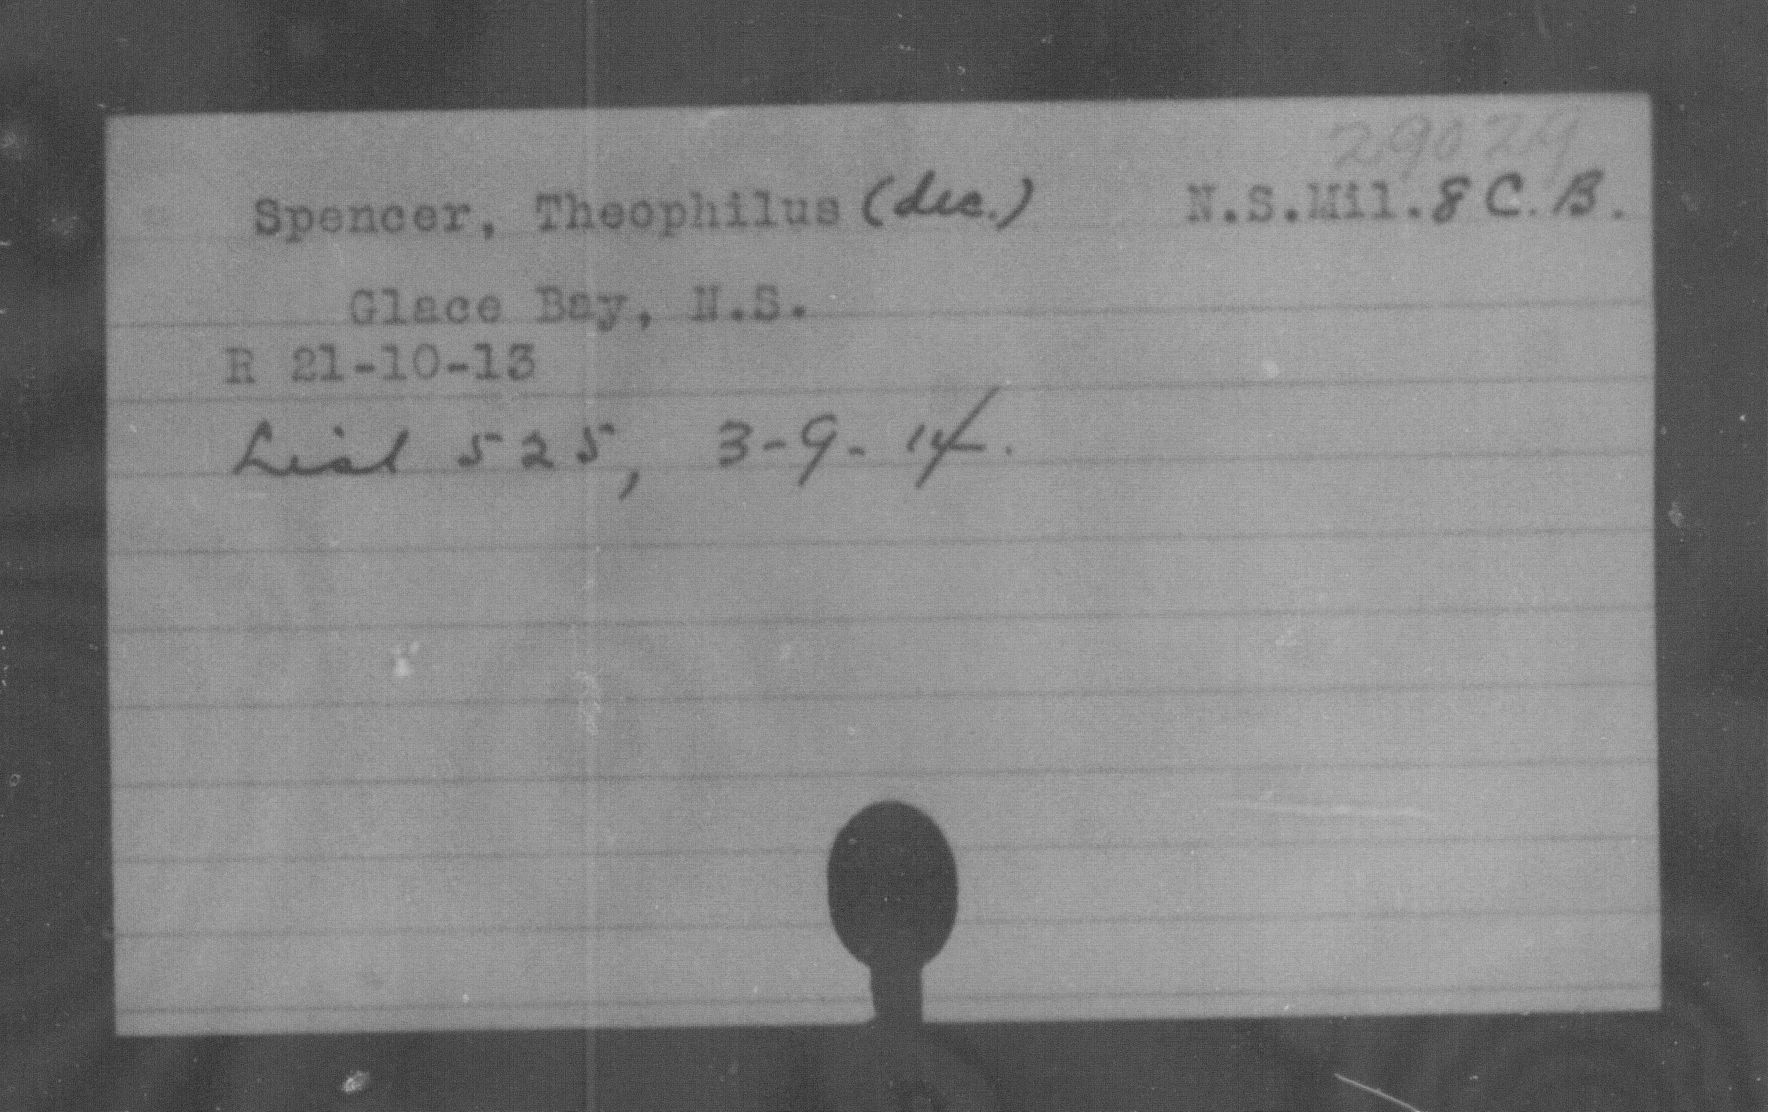 29024
Spencer, Theophilus (dec.) N.S.Mil. & C.B.
Glace Bay, N.S.
R 21-10-13
List 525, 3-9-14.